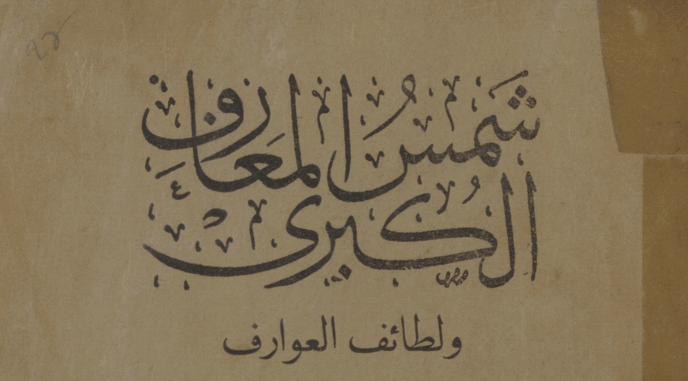 شَمْسُ الْمَعَارِفِ
الْكُبْرَى
ولطائف العوارف